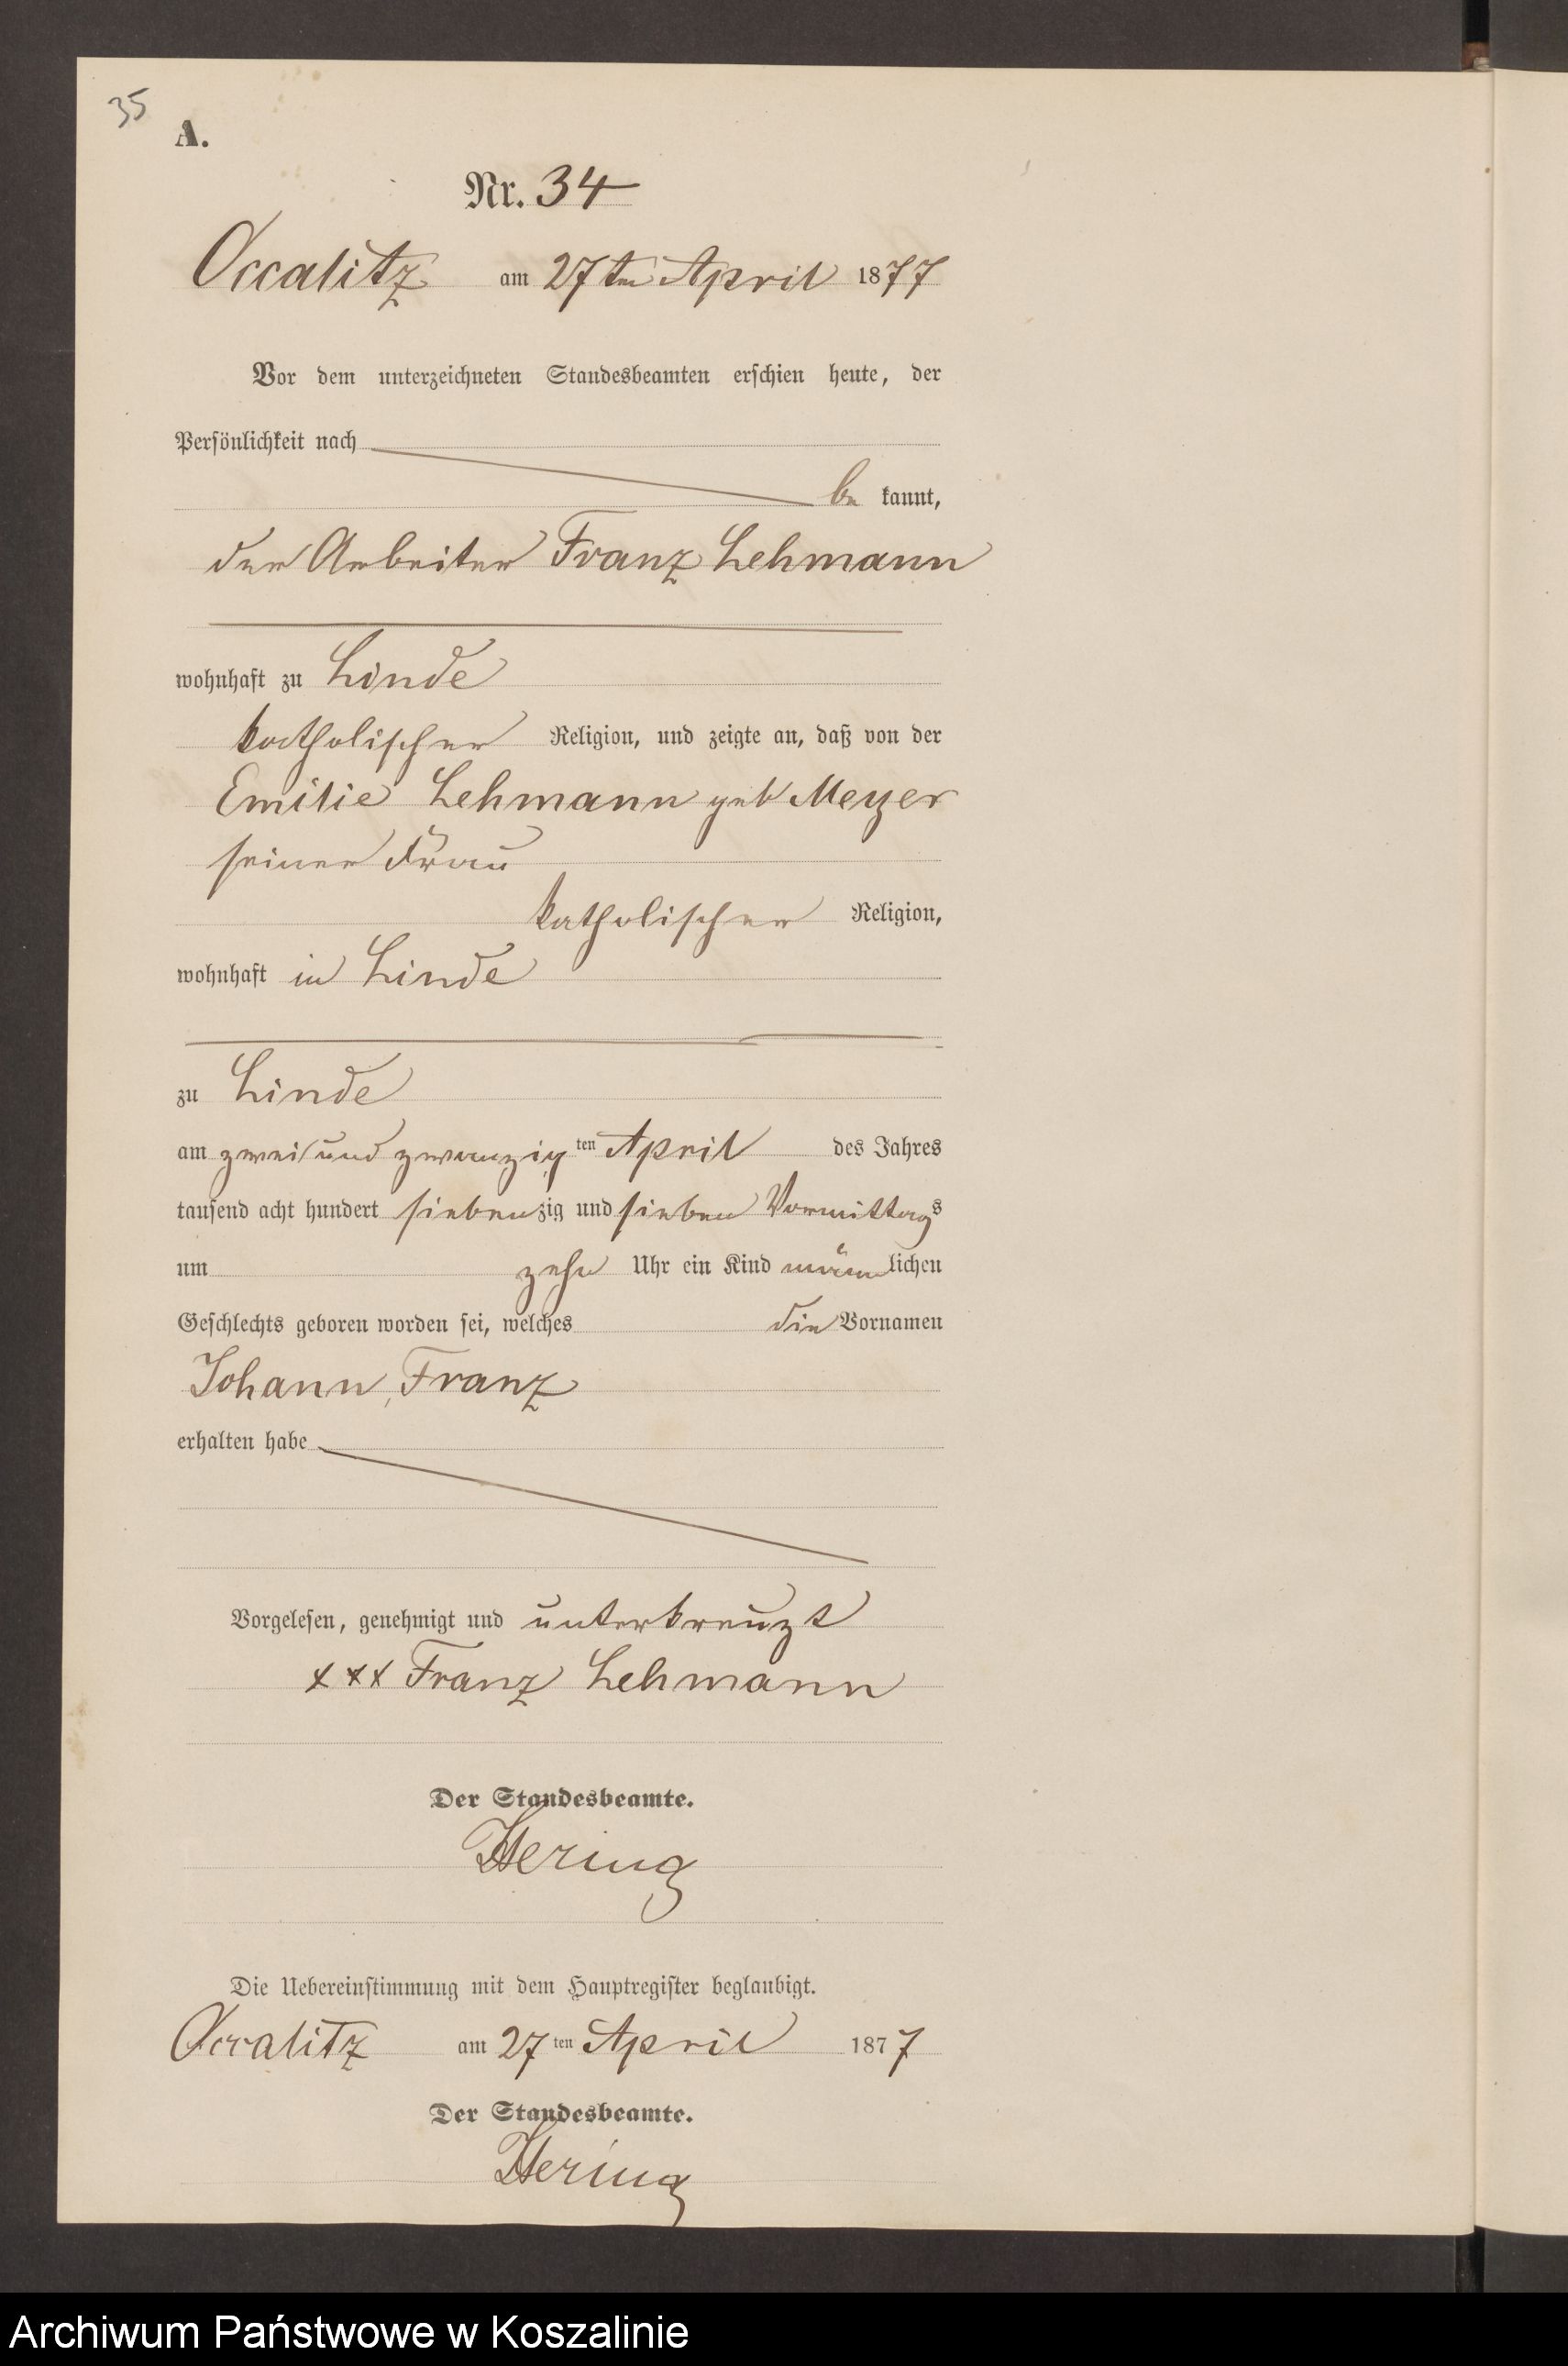 35
A.
Nr. 34
Occalitz am 27ten April 1877
Vor dem unterzeichneten Standesbeamten erschien heute, der
Persönlichkeit nach
be kannt,
der Arbeiter Franz Lehmann
wohnhaft zu Linde
katholischer Religion, und zeigte an, daß von der
Emilie Lehmann geb Meyer
seiner Frau
katholischer Religion,
wohnhaft in Linde
zu Linde
am zwei und zwanzig ten April des Jahres
tausend acht hundert siebenzig und sieben Vormittags
um zehn Uhr ein Kind männlichen
Geschlechts geboren worden sei, welches die Vornamen
Johann, Franz
erhalten habe
Vorgelesen, genehmigt und unterkreuzt
xxx Franz Lehmann
Der Standesbeamte.
Hering
Die Uebereinstimmung mit dem Hauptregister beglaubigt.
Occalitz am 27 ten April 1877
Der Standesbeamte.
Hering
Archiwum Państwowe w Koszalinie